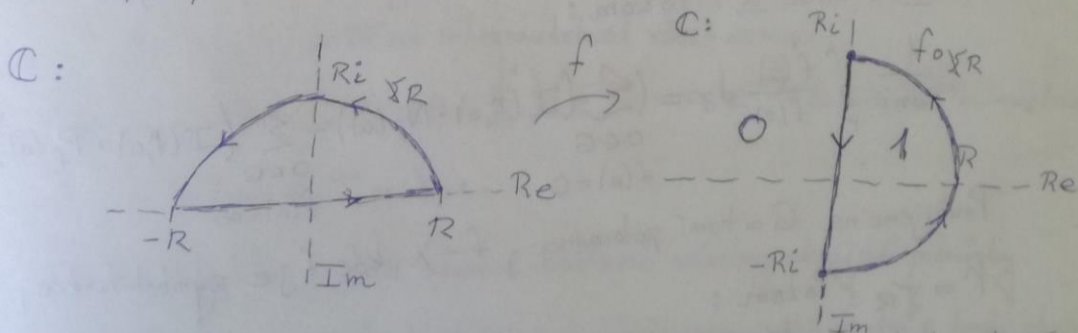 ℂ:
Ri
γR
-R
R
Re
Im
f
ℂ:
Ri
f∘γR
0
1
R
Re
-Ri
Im